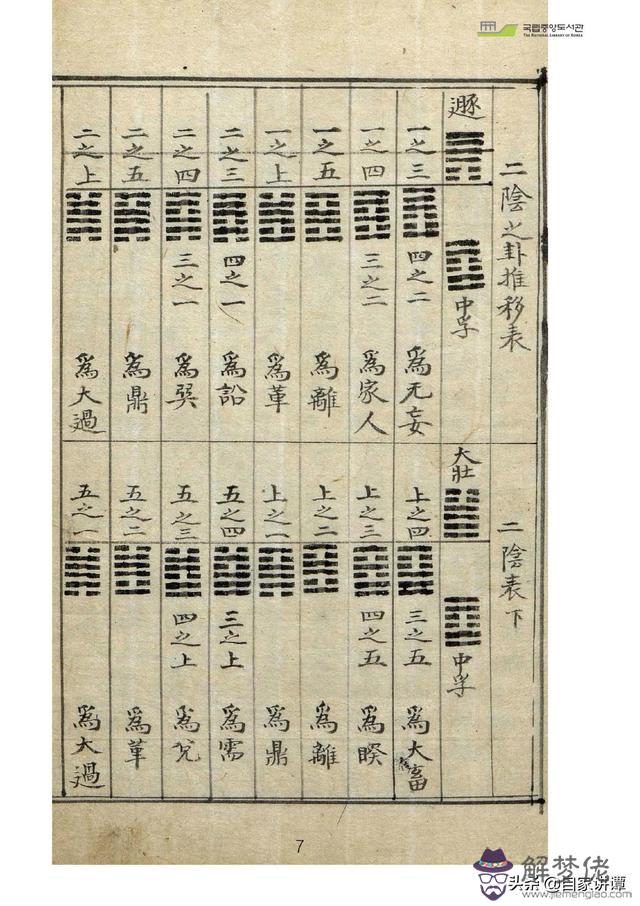 국립중앙도서관
THE NATIONAL LIBRARY OF KOREA
二陰之卦推移表
遯
中孚
一之三
四之二
爲无妄
一之四
三之二
爲家人
一之五
爲離
一之上
爲革
二之三
四之一
爲訟
二之四
三之一
爲巽
二之五
爲鼎
二之上
爲大過
二陰表下
大壯
中孚
上之四
三之五
爲大畜
上之三
四之五
爲睽
上之二
爲離
上之一
爲鼎
五之四
三之上
爲需
五之三
四之上
爲兌
五之二
爲革
五之一
爲大過
7
解梦佬
头条 @自家讲谭
www.jiemenglao.com